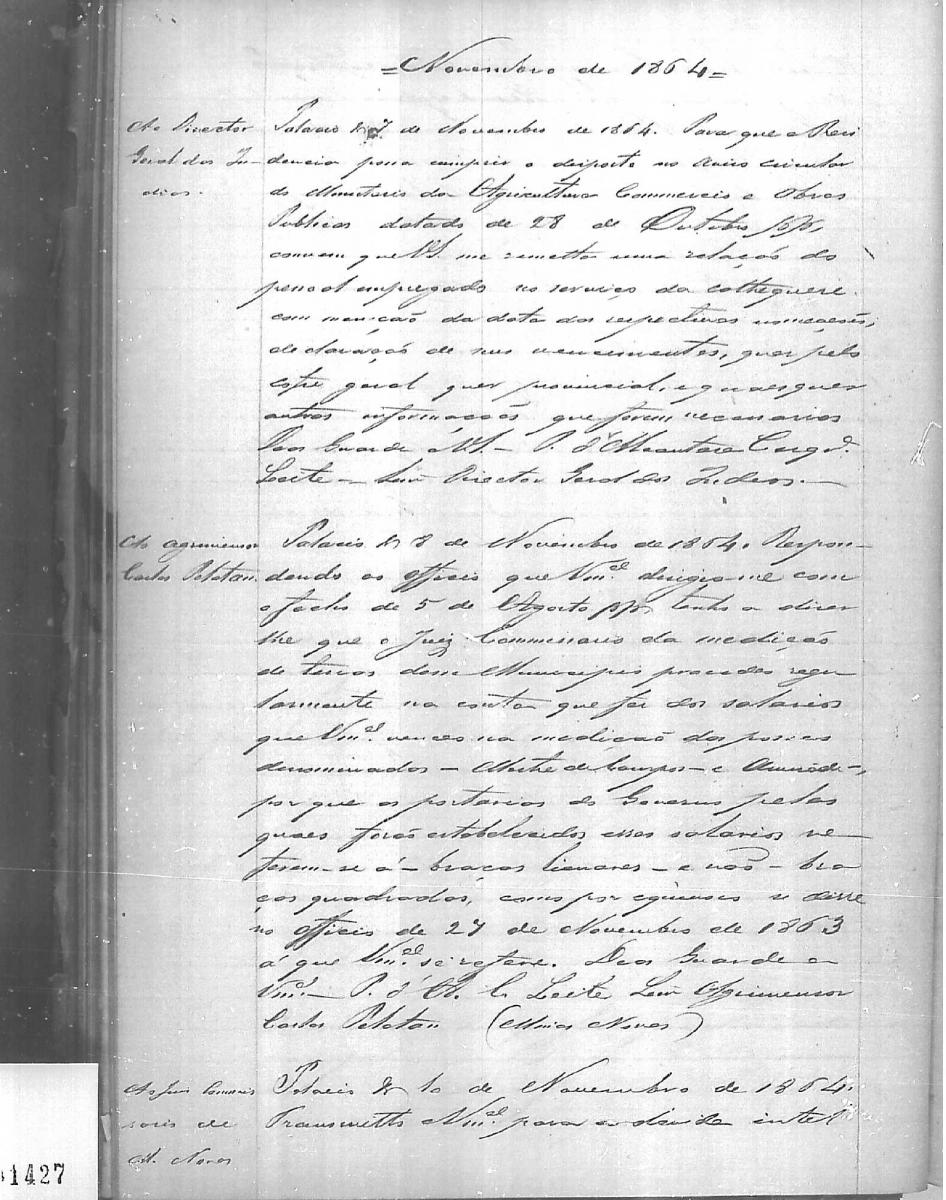 = Novembro de 1864 =
Ao Director
Geral dos In-
dios.
Palacio & 7 de Novembro de 1864. Para que a Presi
dencia possa cumprir o disposto no aviso circular
do Ministerio da Agricultura Commercio e Obras
Publicas datado de 28 de Outubro pp,
convem que VS. me remetta uma relação do
pessoal empregado no serviço da cathequese
com menção da data das respectivas nomeações,
declaração de seus vencimentos, quer pelo
cofre geral quer provincial, e quaesquer
outras informações que forem necessarias
Deos Guarde a VS. - P. d'Alcantara Cerqr.ª
Leite - Snr Director Geral dos Indios. -
Ao agrimensor
Carlos
Palacio & 8 de Novembro de 1864. Respon-
dendo ao officio que Vm.ce dirigio-me com
o fecho de 5 de Agosto pp, tenho a dizer
lhe que o Juiz Commissario da medição
de terras desse Municipio procedeo regu
larmente na conta que fez dos salarios
que Vm.ce venceo na medição das posses
denominadas - Mestre de Campos - e
por que as portarias do Governo pelas
quaes forão estabelecidos esses salarios re-
ferem-se á - braças lineares - e não - bra
ças quadradas, como por equivoco se disse
no officio de 27 de Novembro de 1863
á que Vm.ce se refere. Deos Guarde a
Vm.ce - P. d'A. C. Leite Snr Agrimensor
Carlos (Minas Novas)
Ao Juiz Commis
sario de
M. Novas
Palacio & 10 de Novembro de 1864.
Transmitto a Vm.ce para a devida intel
1427